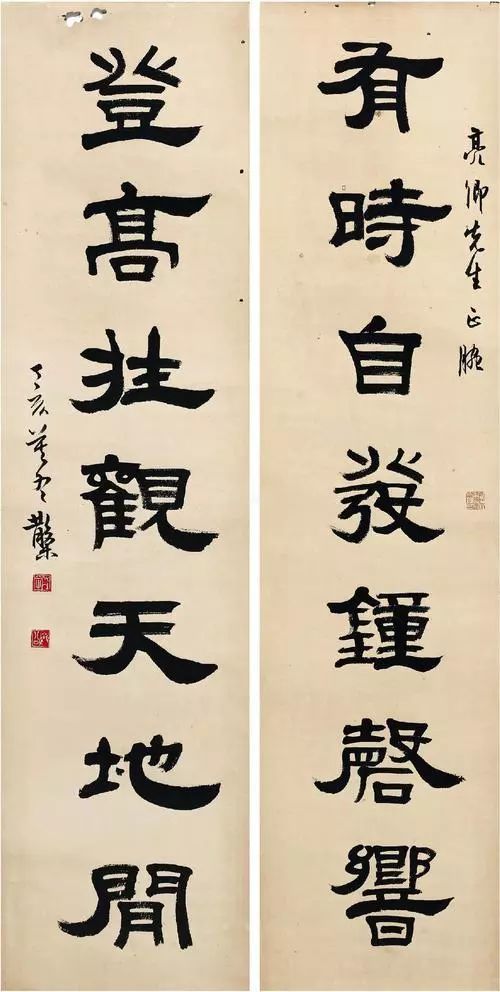 亮卿先生正腕
有時自發鐘磬響
登高壯觀天地間
丁亥莫冬散木